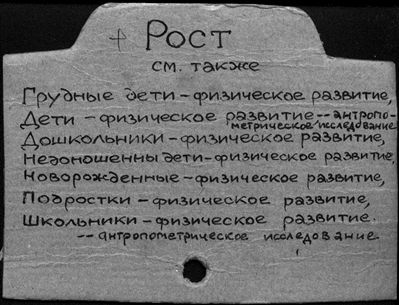 + Рост
см. также
Грудные дети - физическое развитие,
Дети - физическое развитие -- антропо-
метрическое исследование
Дошкольники - физическое развитие,
Недоношенны дети - физическое развитие,
Новорожденные - физическое развитие,
Подростки - физическое развитие,
Школьники - физическое развитие.
-- антропометрическое исследование